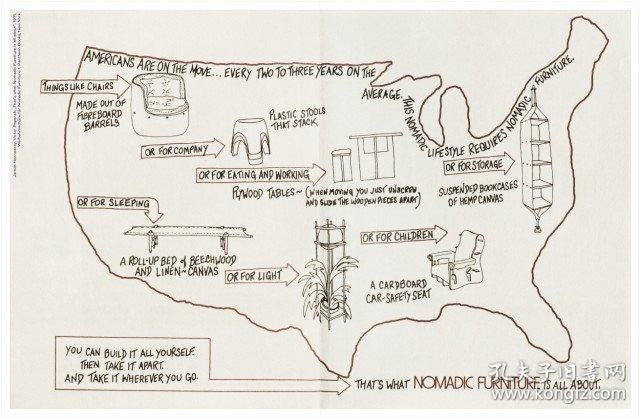 AMERICANS ARE ON THE MOVE... EVERY TWO TO THREE YEARS ON THE
AVERAGE. THIS NOMADIC LIFESTYLE REQUIRES NOMADIC FURNITURE.
THINGS LIKE CHAIRS
MADE OUT OF
FIBREBOARD
BARRELS
PLASTIC STOOLS
THAT STACK
OR FOR COMPANY
OR FOR EATING AND WORKING
PLYWOOD TABLES~ (WHEN MOVING YOU JUST UNSCREW
AND SLIDE THE WOODEN PIECES APART)
OR FOR STORAGE
SUSPENDED BOOKCASES
OF HEMP CANVAS
OR FOR SLEEPING
A ROLL-UP BED of BEECHWOOD
AND LINEN~CANVAS
OR FOR LIGHT
OR FOR CHILDREN
A CARDBOARD
CAR-SAFETY SEAT
YOU CAN BUILD IT ALL YOURSELF.
THEN TAKE IT APART.
AND TAKE IT WHEREVER YOU GO.
THAT'S WHAT NOMADIC FURNITURE IS ALL ABOUT.
孔夫子旧书网
www.kongfz.com